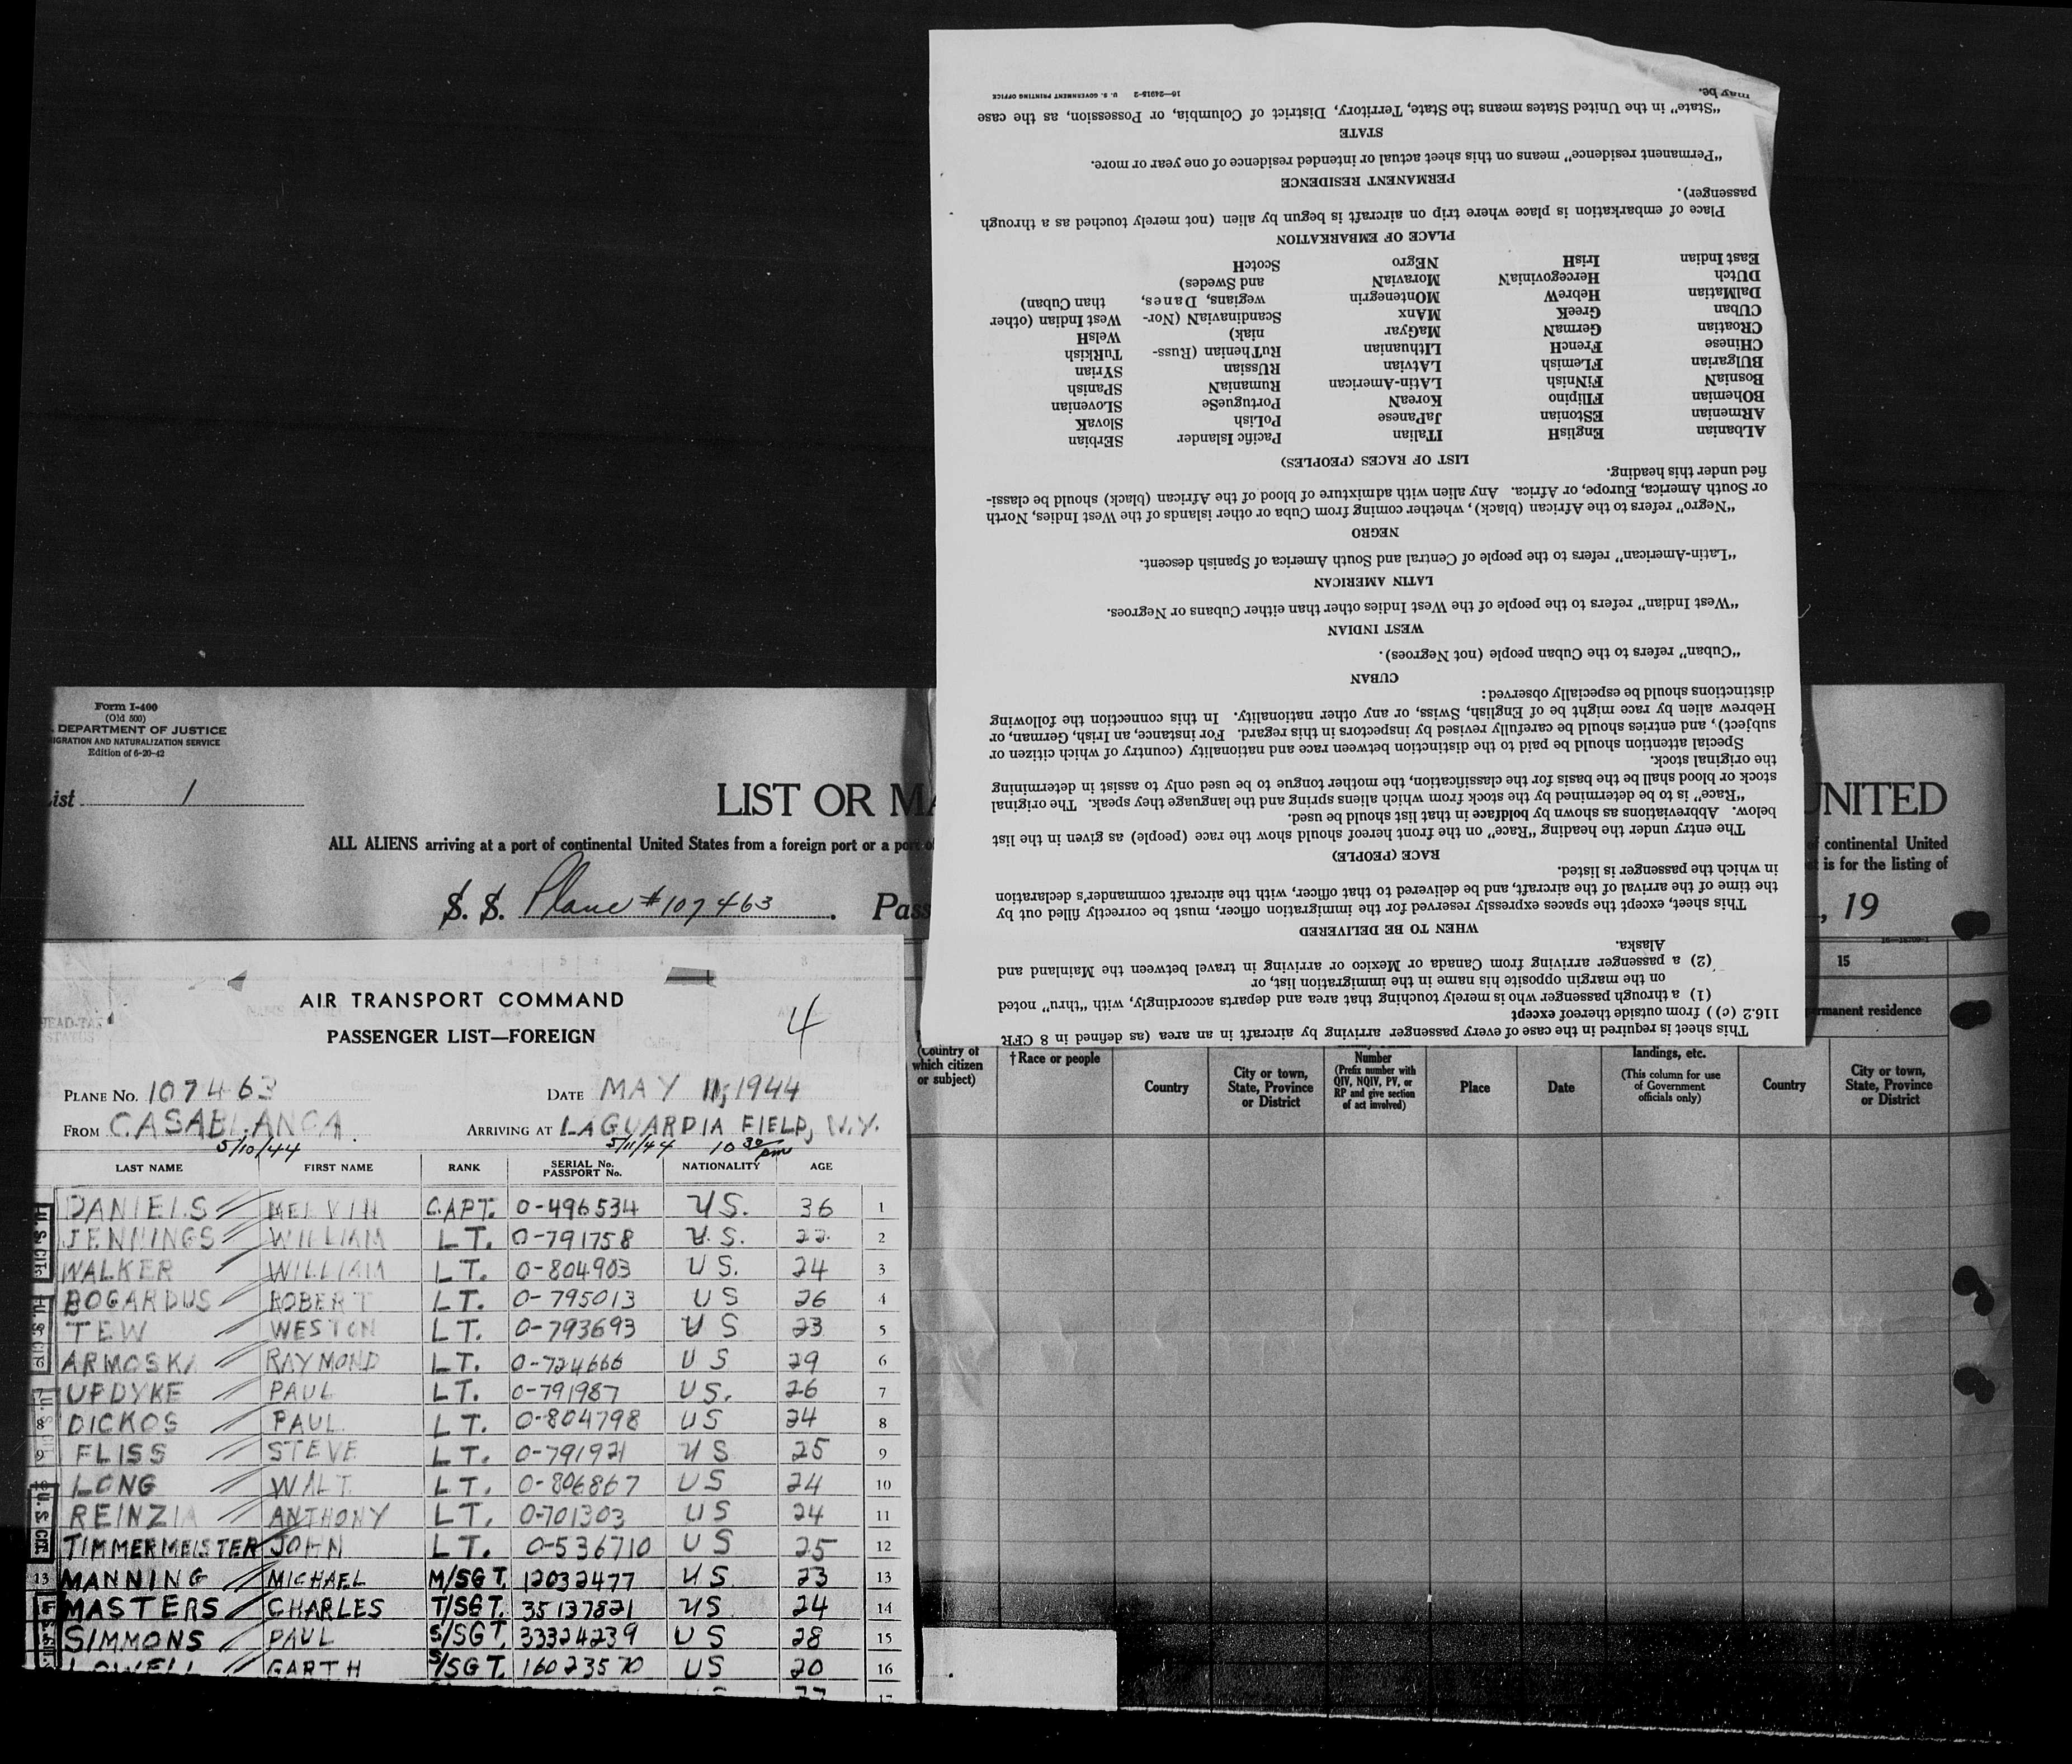 Form I-400
(Old 500)
DEPARTMENT OF JUSTICE
IGRATION AND NATURALIZATION SERVICE
Edition of 6-20-42
ist 1
LIST OR MA
UNITED
ALL ALIENS arriving at a port of continental United States from a foreign port or a port o
of continental United
is for the listing of
S. S. Plane #107463. Pass
, 19
AIR TRANSPORT COMMAND
4
PASSENGER LIST—FOREIGN
PLANE NO. 107463 DATE MAY 11, 1944
FROM CASABLANCA ARRIVING AT LAGUARDIA FIELD, N.Y.
5/10/44 5/11/44 10 30 pm
LAST NAME FIRST NAME RANK SERIAL No. PASSPORT No. NATIONALITY AGE
DANIELS MELVIN CAPT. 0-496534 US. 36 1
JENNINGS WILLIAM LT. 0-791758 U.S. 22 2
WALKER WILLIAM LT. 0-804903 US. 24 3
BOGARDUS ROBERT LT. 0-795013 US 26 4
TEW WESTON LT. 0-793693 US 23 5
ARMOSKA RAYMOND LT. 0-724666 US 29 6
UPDYKE PAUL LT. 0-791987 US. 26 7
DICKOS PAUL LT. 0-804798 US 24 8
FLISS STEVE LT. 0-791921 US 25 9
LONG WALT. LT. 0-806867 US 24 10
REINZIA ANTHONY LT. 0-701303 US 24 11
TIMMERMEISTER JOHN LT. 0-536710 US 25 12
13 MANNING MICHAEL M/SGT. 12032477 US 23 13
MASTERS CHARLES T/SGT. 35137821 US 24 14
SIMMONS PAUL S/SGT. 33324239 US 28 15
LOWELL GARTH S/SGT. 16023570 US 20 16
17
U.S. CIT.
15
(Country of which citizen or subject)
†Race or people
Country
City or town, State, Province or District
Number
(Prefix number with QIV, NQIV, PV, or RP and give section of act involved)
Place
Date
landings, etc.
(This column for use of Government officials only)
rmanent residence
Country
City or town, State, Province or District
This sheet is required in the case of every passenger arriving by aircraft in an area (as defined in 8 CFR
116.2 (c) ) from outside thereof except
(1) a through passenger who is merely touching that area and departs accordingly, with “thru” noted
on the margin opposite his name in the immigration list, or
(2) a passenger arriving from Canada or Mexico or arriving in travel between the Mainland and
Alaska.
WHEN TO BE DELIVERED
This sheet, except the spaces expressly reserved for the immigration officer, must be correctly filled out by
the time of the arrival of the aircraft, and be delivered to that officer, with the aircraft commander’s declaration
in which the passenger is listed.
RACE (PEOPLE)
The entry under the heading “Race” on the front hereof should show the race (people) as given in the list
below. Abbreviations as shown by boldface in that list should be used.
“Race” is to be determined by the stock from which aliens spring and the language they speak. The original
stock or blood shall be the basis for the classification, the mother tongue to be used only to assist in determining
the original stock.
Special attention should be paid to the distinction between race and nationality (country of which citizen or
subject), and entries should be carefully revised by inspectors in this regard. For instance, an Irish, German, or
Hebrew alien by race might be of English, Swiss, or any other nationality. In this connection the following
distinctions should be especially observed:
CUBAN
“Cuban” refers to the Cuban people (not Negroes).
WEST INDIAN
“West Indian” refers to the people of the West Indies other than either Cubans or Negroes.
LATIN AMERICAN
“Latin-American” refers to the people of Central and South America of Spanish descent.
NEGRO
“Negro” refers to the African (black), whether coming from Cuba or other islands of the West Indies, North
or South America, Europe, or Africa. Any alien with admixture of blood of the African (black) should be classi-
fied under this heading.
LIST OF RACES (PEOPLES)
ALbanian EnglisH ITalian Pacific Islander SErbian
ARmenian EStonian JaPanese PoLish SlovaK
BOhemian FIlipino KoreaN PortugueSe SLovenian
BosniaN FiNNish LAtin-American RumaniaN SPanish
BUlgarian FLemish LAtvian RUssian SYrian
CHinese FrencH LIthuanian RuThenian (Russ- TuRkish
CRoatian GermaN MaGyar niak) WelsH
CUban GreeK MAnx ScandinaviaN (Nor- West Indian (other
DalMatian HebreW MOntenegrin wegians, Danes, than Cuban)
DUtch HercegoviniaN MoraviaN and Swedes)
East Indian IrisH NEgro ScotcH
PLACE OF EMBARKATION
Place of embarkation is place where trip on aircraft is begun by alien (not merely touched as a through
passenger).
PERMANENT RESIDENCE
“Permanent residence” means on this sheet actual or intended residence of one year or more.
STATE
“State” in the United States means the State, Territory, District of Columbia, or Possession, as the case
may be.
16—24915-2 U. S. GOVERNMENT PRINTING OFFICE